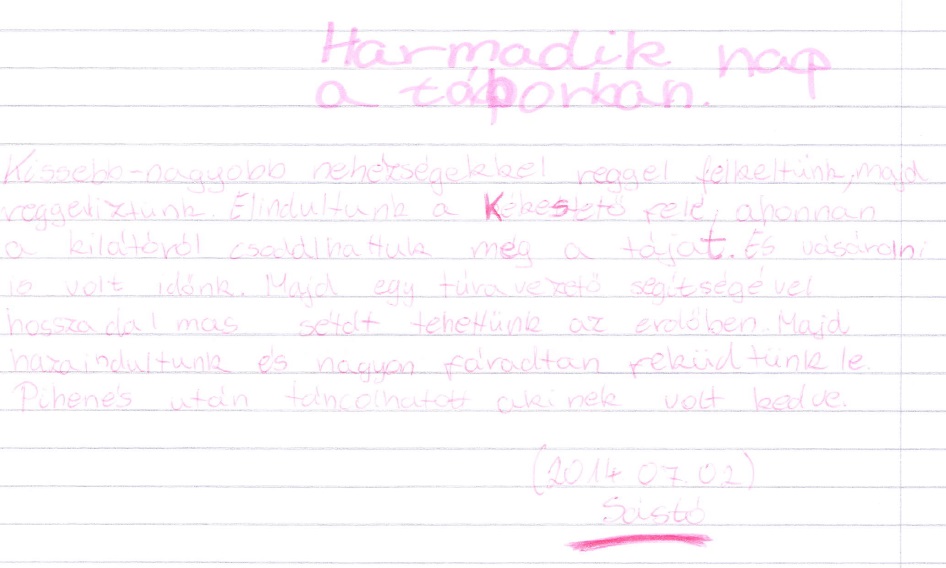 Harmadik nap
a táborban.
Kissebb-nagyobb nehézségekkel reggel felkeltünk, majd
reggeliztünk. Elindultunk a Kékestető felé, ahonnan
a kilátóról csodálhattuk meg a tájat. És vásárolni
is volt időnk. Majd egy túravezető segítségével
hosszadalmas sétát tehettünk az erdőben. Majd
hazaindultunk és nagyon fáradtan feküdtünk le.
Pihenés után táncolhatott akinek volt kedve.
(2014.07.02)